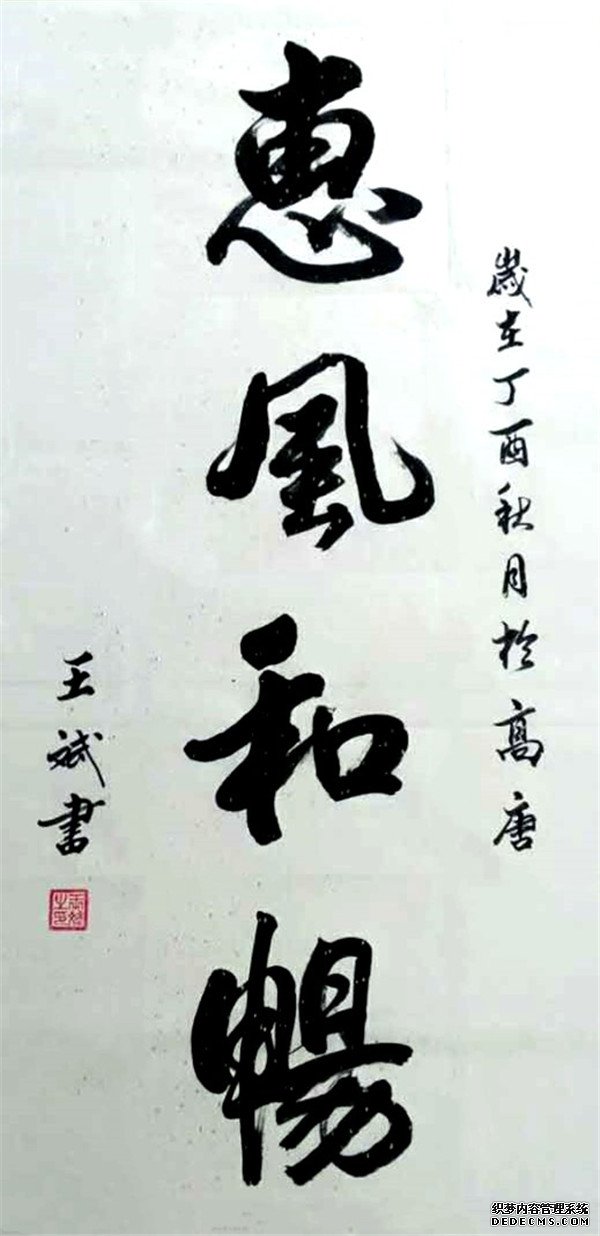 歲在丁酉秋月於高唐
惠風和暢
王斌書
织梦内容管理系统
DEDECMS.COM